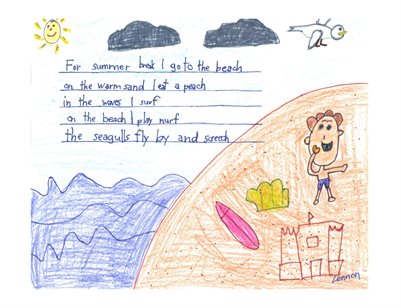 For summer break I go to the beach
on the warm sand I eat a peach
in the waves I surf
on the beach I play nurf
the seagulls fly by and screech
Lennon